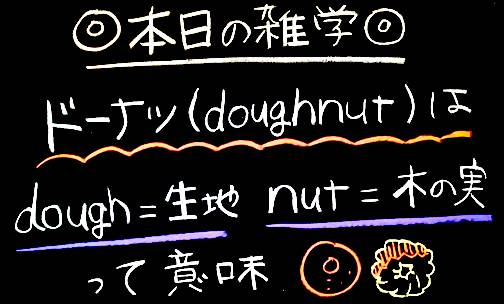 ◎本日の雑学◎
ドーナツ(doughnut)は
dough=生地 nut=木の実
って意味